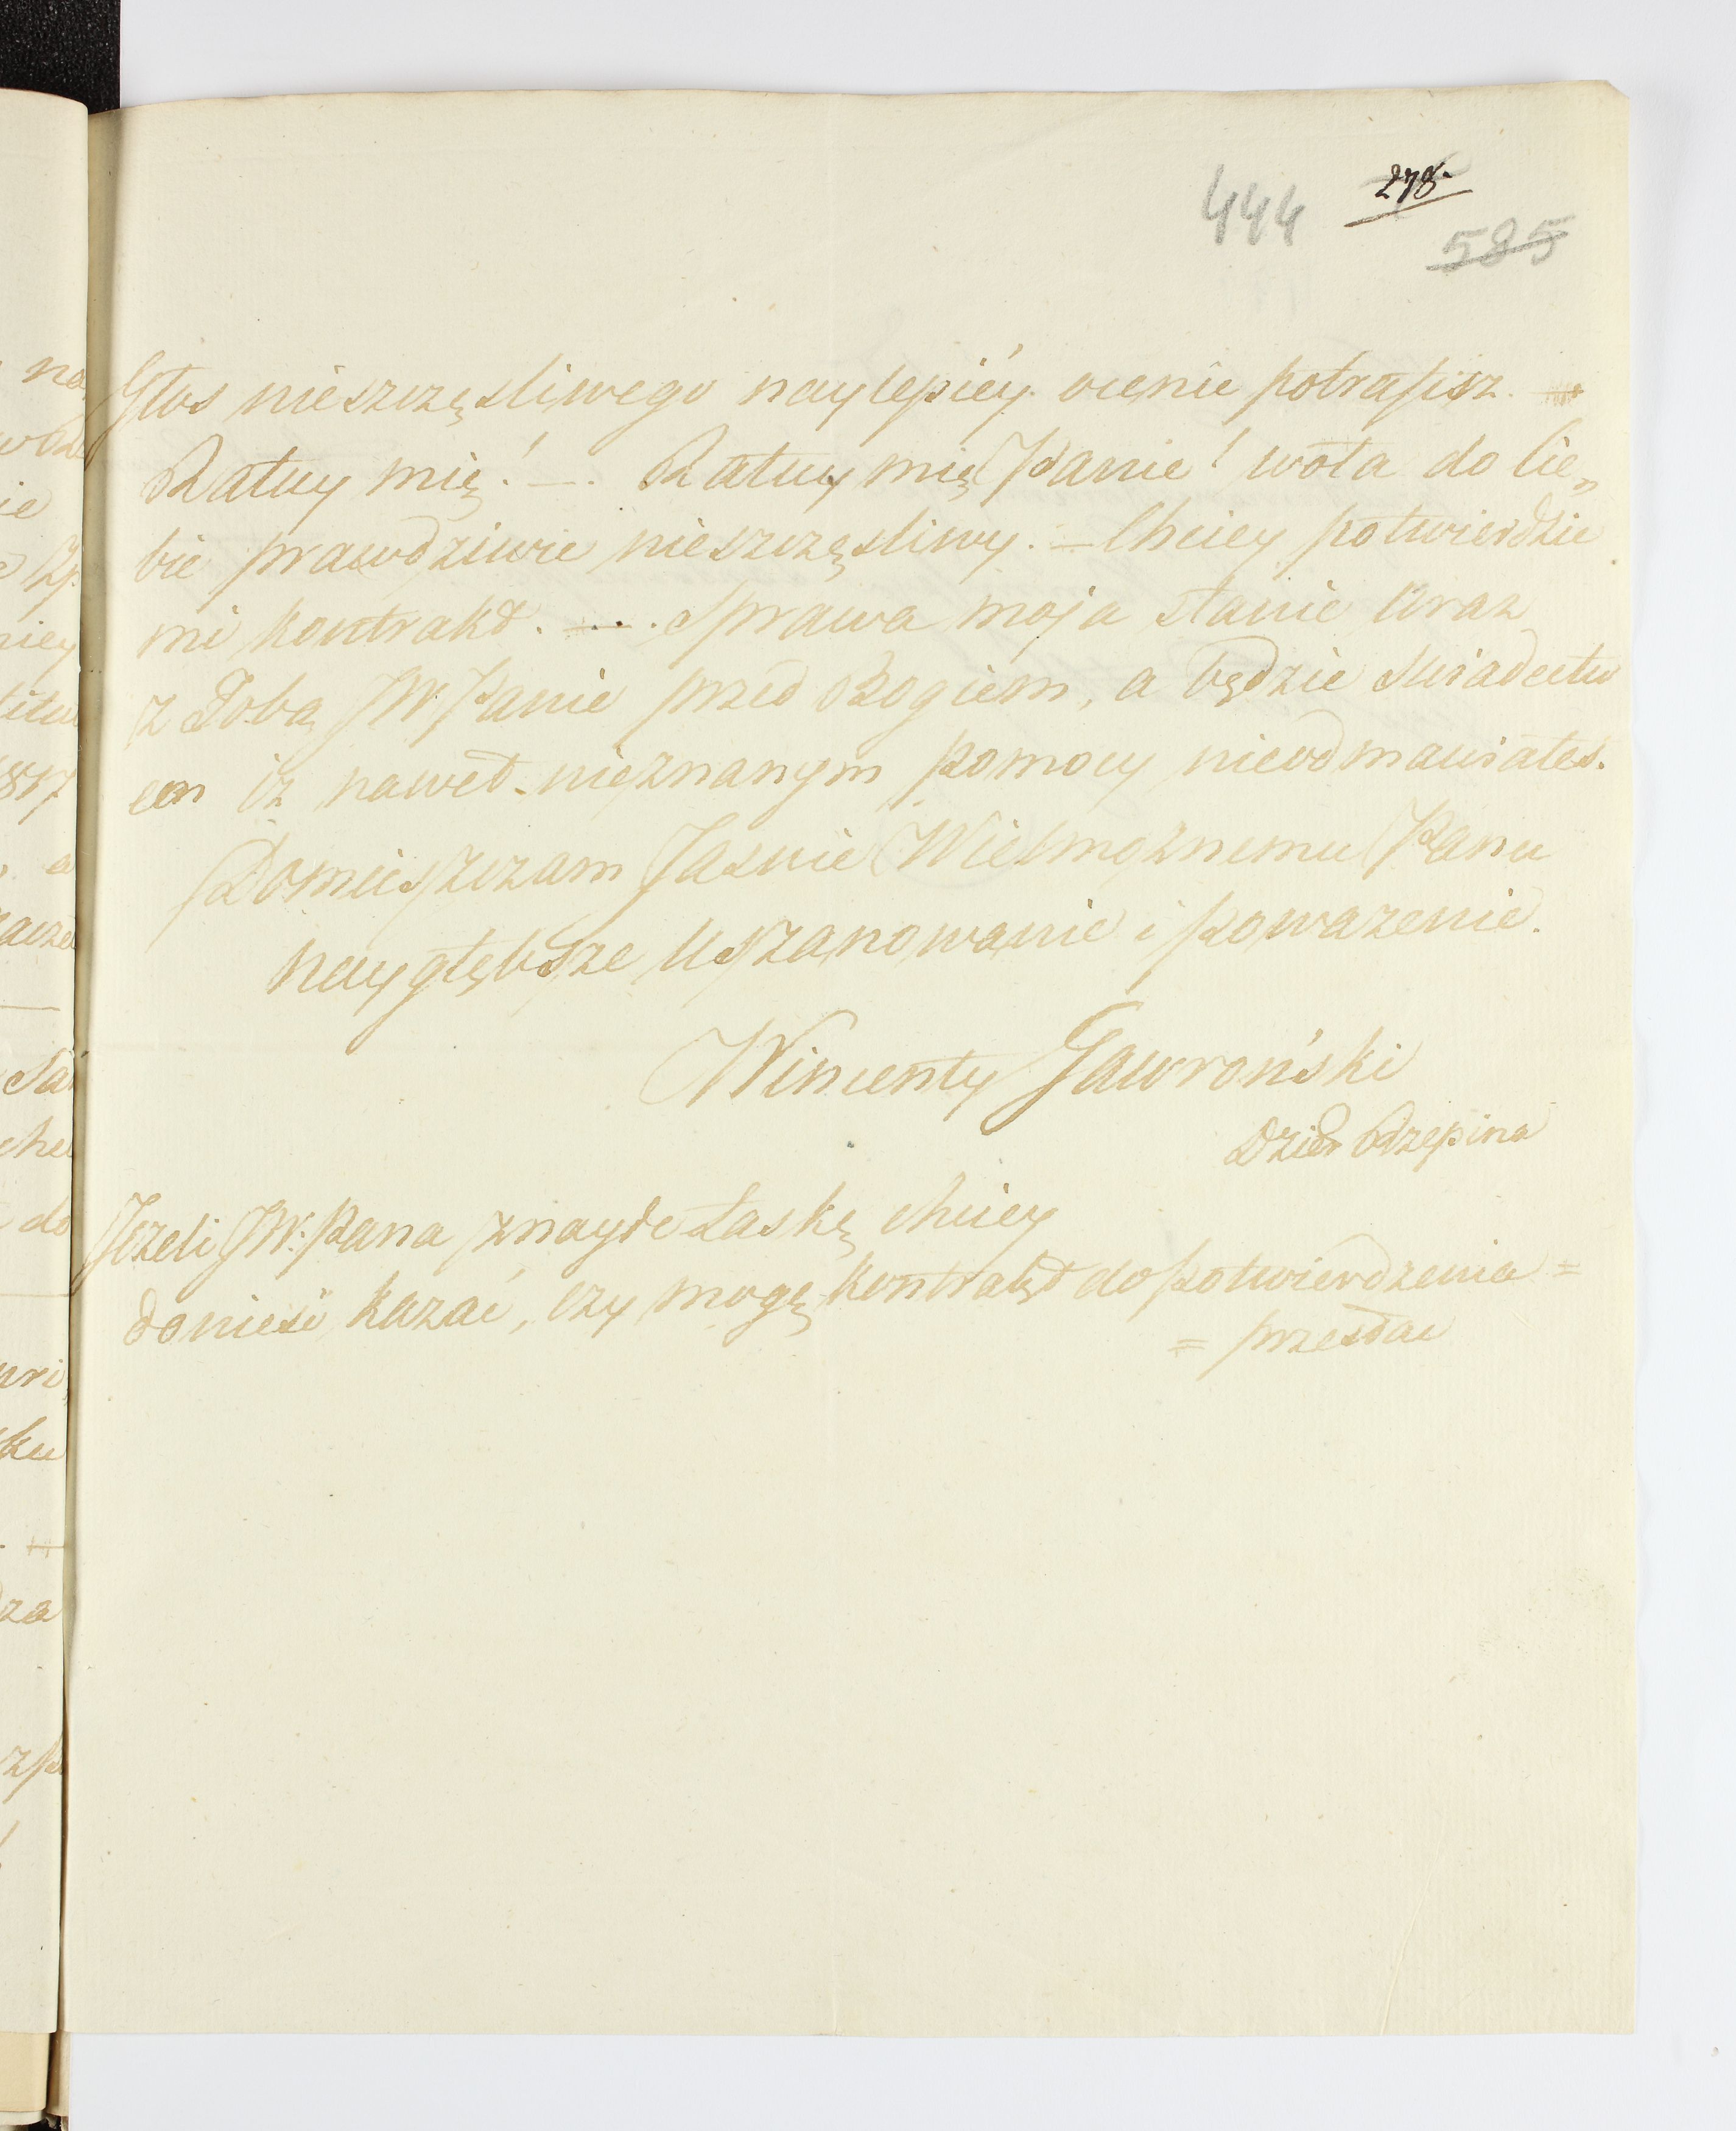 444 278.
585
Głos nieszczęsliwego naylepiéy ocenic potrafisz. —
Ratuy mię! —. Ratuy mię Panie! woła do Cie„
bie prawdziwie nieszczęsliwy. — Chciey potwierdzic
mi kontrakt. — . Sprawa moja stanie wraz
z Tobą JW Panie przed Bogiem, a będzie swiadectw
em iz nawet nieznanym pomocy nieodmawiałes.
Domieszczam Jasnie Wielmoznemu Panu
naygłębsze Uszanowanie i powazenie.
Wincenty Gawroński
Dzier Rzepina
Jezeli JW. Pana znayde Łaskę chciey
donieść kazać, czy mogę kontrakt do potwierdzenia =
= przesłac